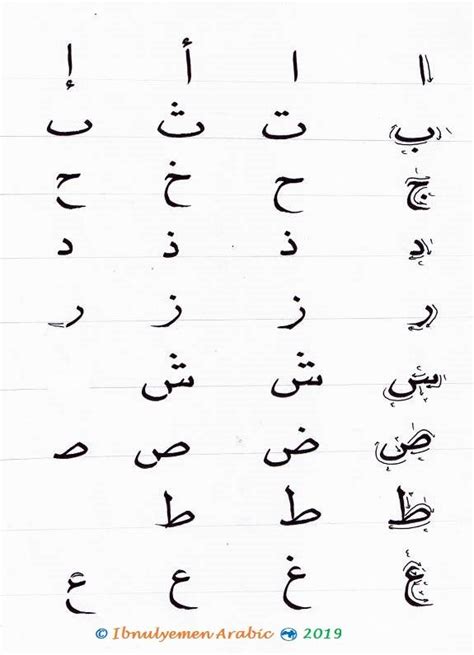 ا ا أ إ
ب ت ث ٮ
ج ح خ ح
د ذ ذ د
ر ز ز ر
س ش ش
ص ض ص ص
ط ط ط
ع غ ع ع
© Ibnulyemen Arabic 2019